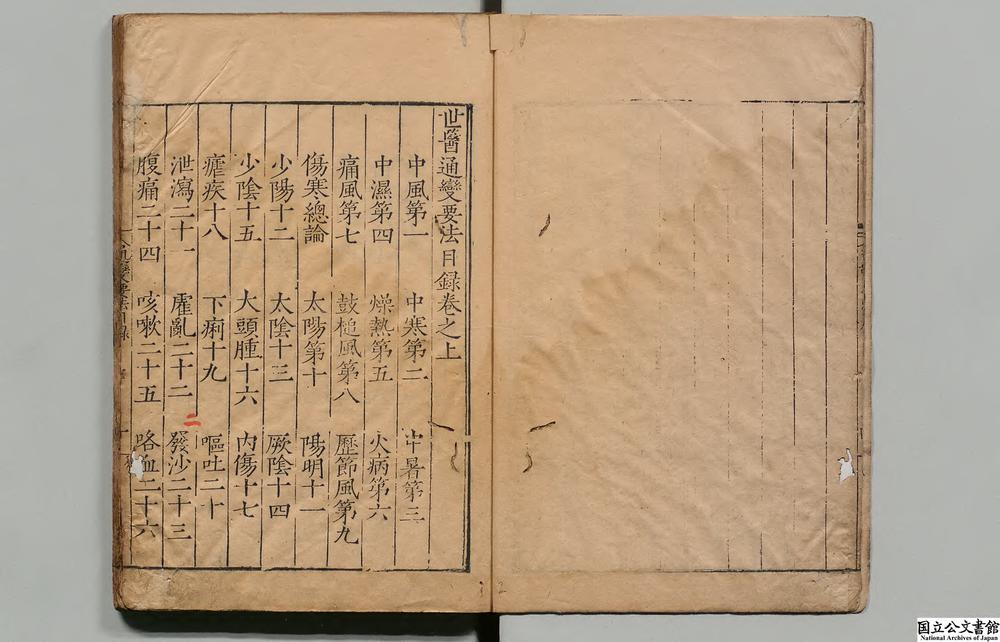 世醫通變要法目録卷之上
中風第一　中寒第二　中暑第三
中濕第四　燥熱第五　火病第六
痛風第七　鼓槌風第八　歷節風第九
傷寒總論　太陽第十　陽明十一
少陽十二　太陰十三　厥陰十四
少陰十五　大頭腫十六　内傷十七
瘧疾十八　下痢十九　嘔吐二十
泄瀉二十一　霍亂二十二　發沙二十三
二
腹痛二十四　咳嗽二十五　咯血二十六
国立公文書館
National Archives of Japan